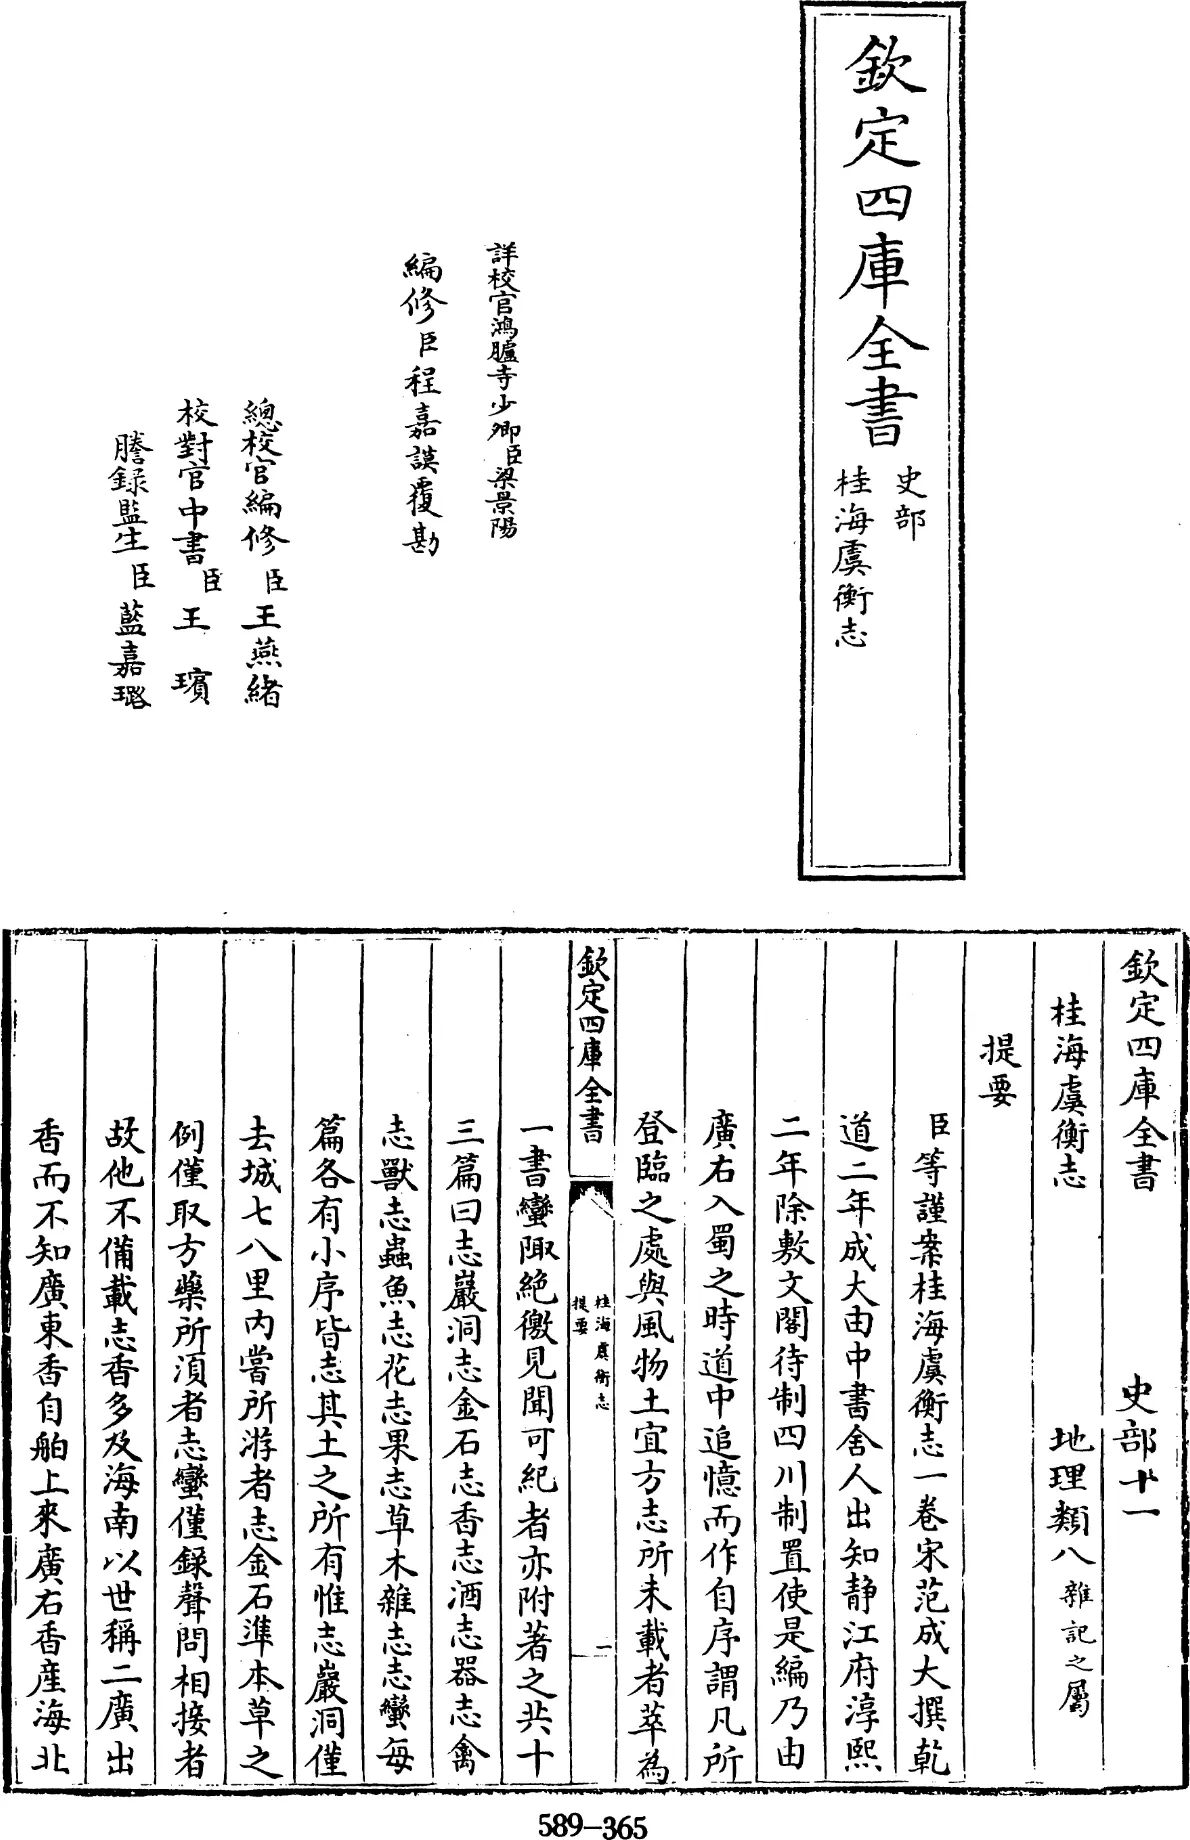 欽定四庫全書
史部
桂海虞衡志
詳校官鴻臚寺少卿臣梁景陽
編修臣程嘉謨覆勘
總校官編修臣王燕緒
校對官中書臣王璸
謄錄監生臣藍嘉璐
欽定四庫全書 史部十一
桂海虞衡志 地理類八雜記之屬
提要
臣等謹案桂海虞衡志一卷宋范成大撰乾
道二年成大由中書舍人出知靜江府淳熙
二年除敷文閣待制四川制置使是編乃由
廣右入蜀之時道中追憶而作自序謂凡所
登臨之處與風物土宜方志所未載者萃為
欽定四庫全書
桂海虞衡志
提要
一
一書蠻陬絶徼見聞可紀者亦附著之共十
三篇曰志巖洞志金石志香志酒志器志禽
志獸志蟲魚志花志果志草木雜志志蠻每
篇各有小序皆志其土之所有惟志巖洞僅
去城七八里内嘗所游者志金石準本草之
例僅取方藥所須者志蠻僅錄聲問相接者
故他不備載志香多及海南以世稱二廣出
香而不知廣東香自舶上來廣右香産海北
589-365